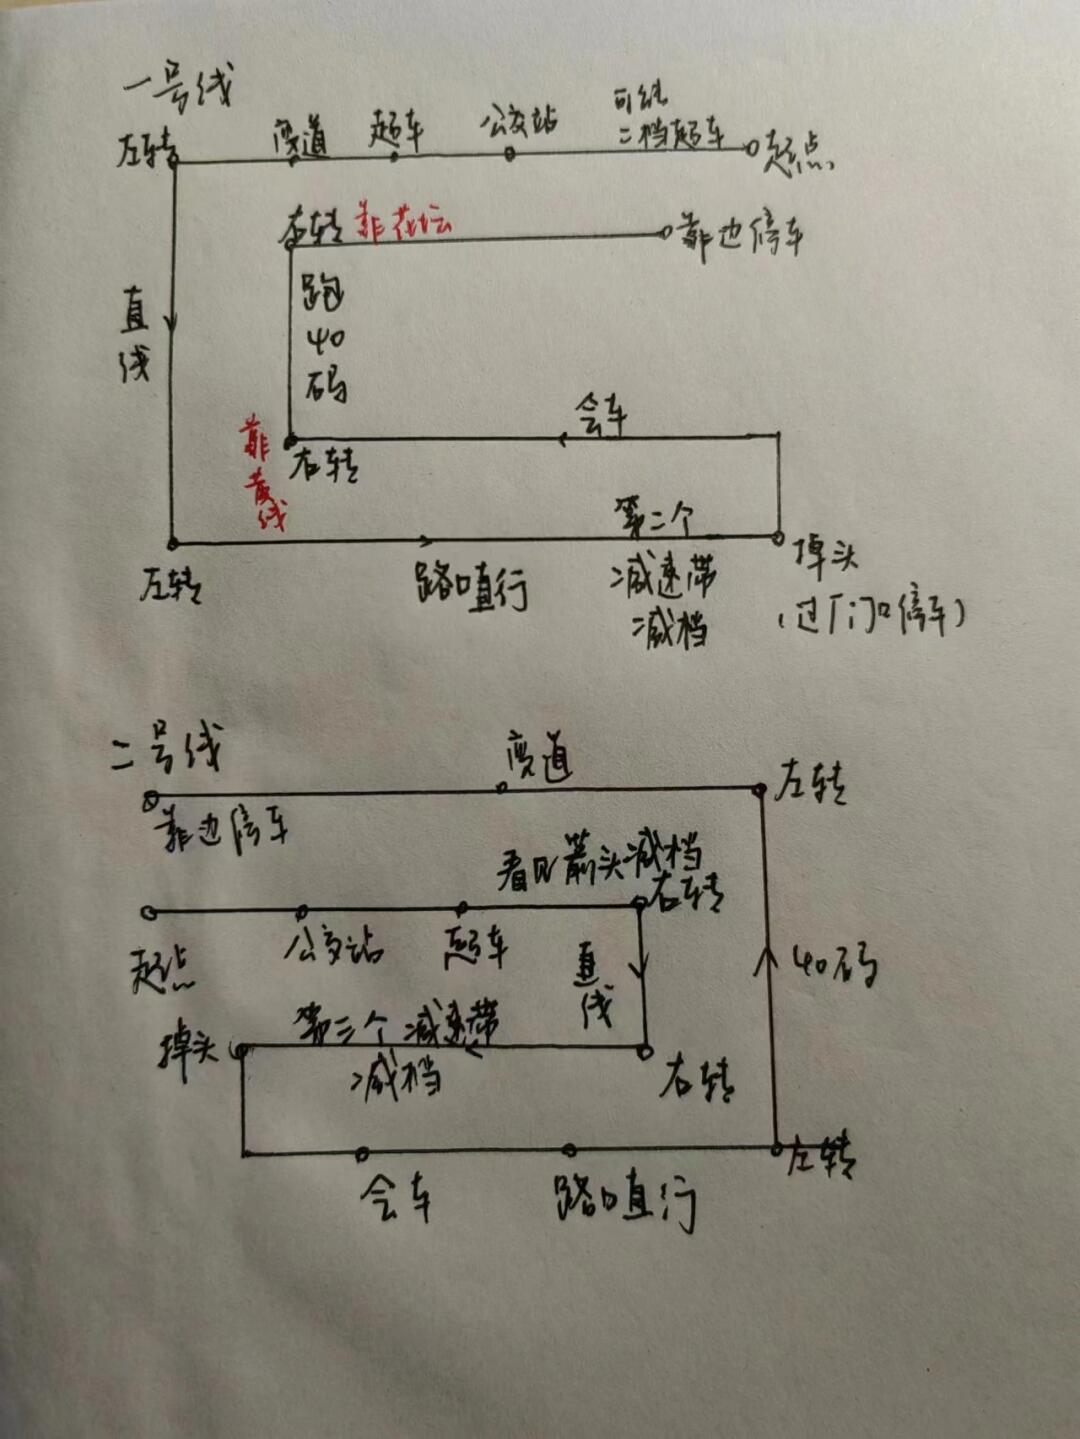 一号线
可能
左转
变道
超车
公交站
二档超车
起点
右转
靠花坛
靠边停车
跑
40
码
直
线
会车
靠
黄
线
右转
第二个
减速带
减档
左转
路口直行
掉头
(过厂门口停车)
二号线
变道
左转
靠边停车
看见箭头减档
右转
起点
公交站
超车
直
线
40码
掉头
第三个减速带
减档
右转
左转
会车
路口直行